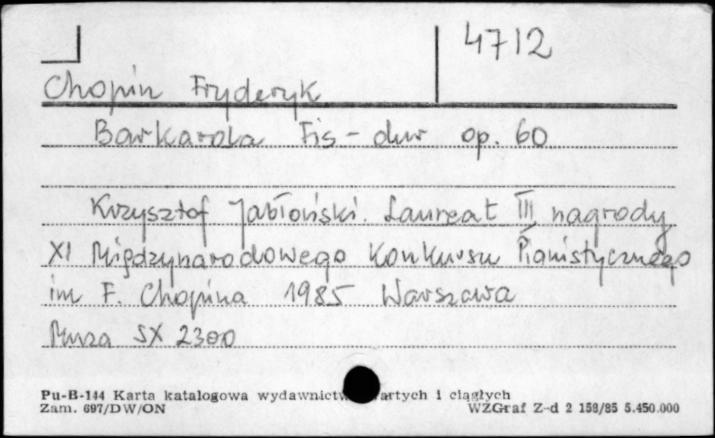 4712
Chopin Fryderyk
Barkarola Fis-dur op. 60
Krzysztof Jabłoński. Laureat III nagrody
XI Międzynarodowego Konkursu Pianistycznego
im F. Chopina 1985 Warszawa
Muza SX 2300
Pu-B-144 Karta katalogowa wydawnictw i ciągłych
Zam. 697/DW/ON WZGraf Z-d 2 158/85 5.450.000